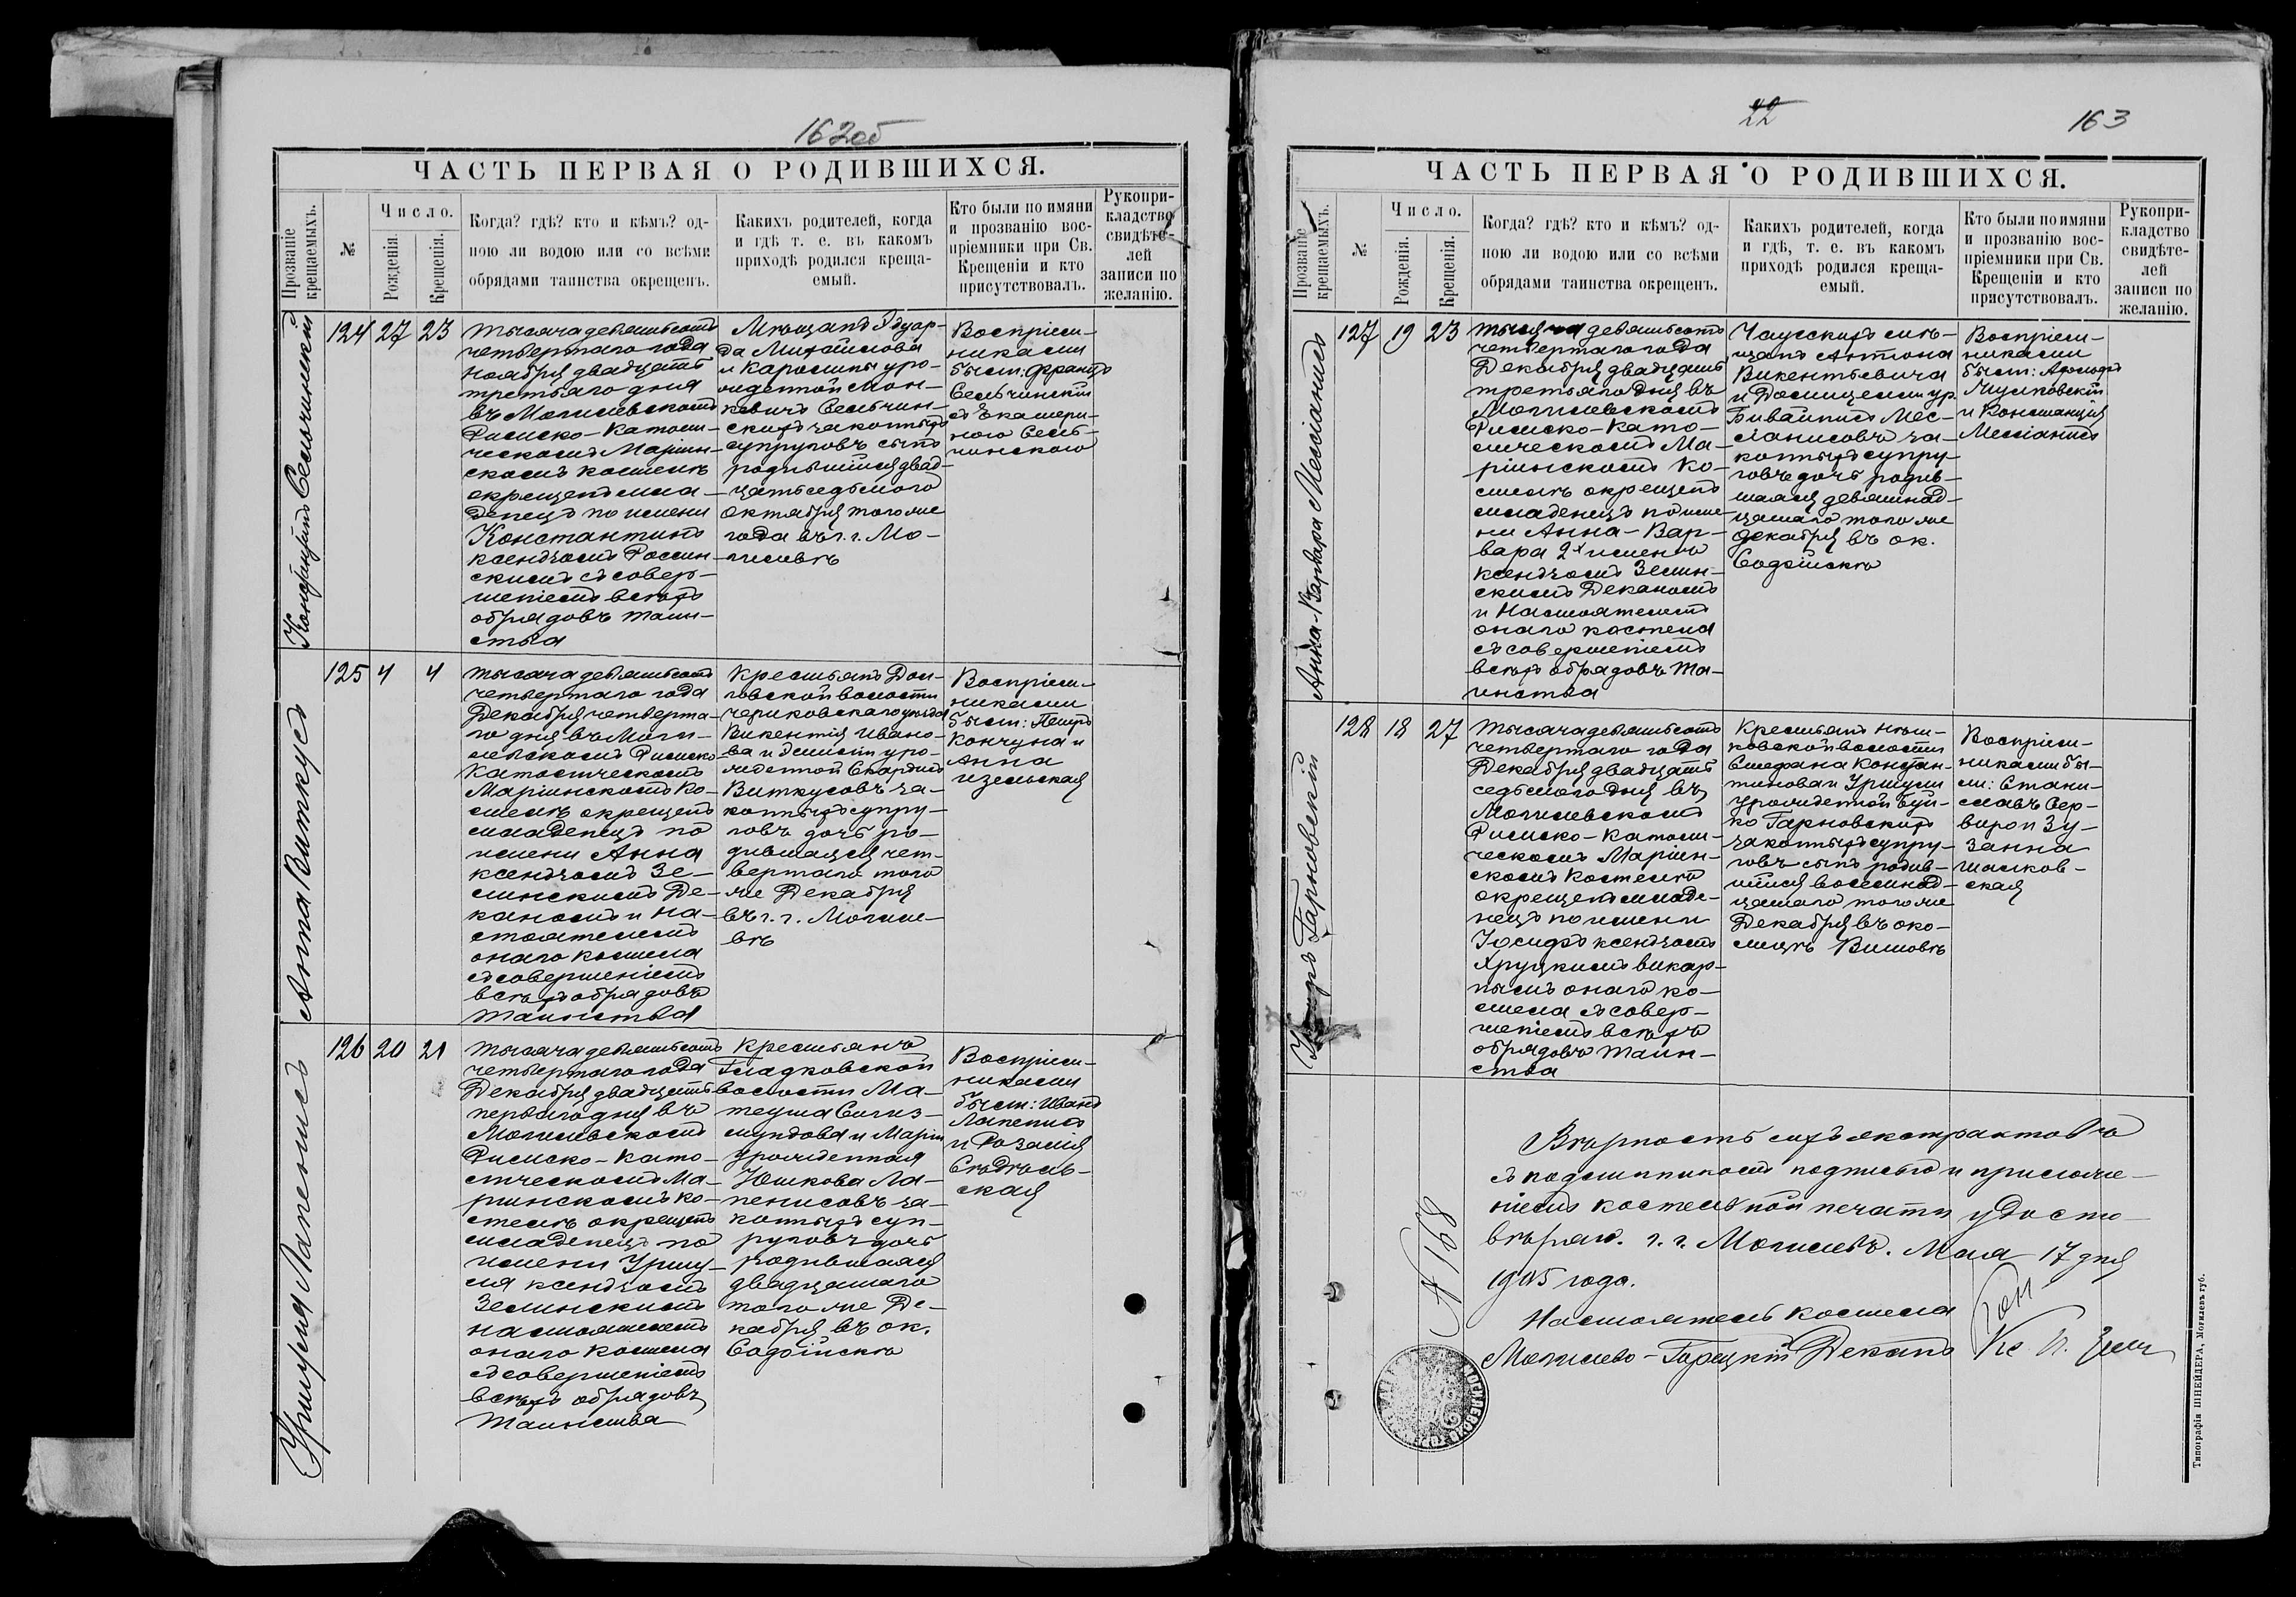 162об
ЧАСТЬ ПЕРВАЯ О РОДИВШИХСЯ.
Прозваніе крещаемыхъ.
№
Число.
Рожденія.
Крещенія.
Когда? гдѣ? кто и кѣмъ? од-
ною ли водою или со всѣми
обрядами таинства окрещенъ.
Какихъ родителей, когда
и гдѣ т. е. въ какомъ
приходѣ родился креща-
емый.
Кто были по имяни
и прозванію вос-
пріемники при Св.
Крещеніи и кто
присутствовалъ.
Рукопри-
кладство
свидѣте-
лей
записи по
желанію.
Константинъ Сельчинскій
124 27 23
Тысяча девятьсотъ
четвертаго года
Ноября двадцать
третьяго дня
въ Могилевскомъ
Римско-Католи-
ческомъ Маріин-
скомъ костелѣ
окрещенъ мла-
денецъ по имени
Константинъ
ксендзомъ
скимъ съ совер-
шеніемъ всѣхъ
обрядовъ таин-
ства
Мѣщанъ Эдуар-
да Михайлова
и Каролины уро-
жденной Мон-
кевичъ Сельчин-
скихъ законныхъ
супруговъ сынъ
родившійся двад-
цать седьмого
Октября того же
года въ г. г. Мо-
гилевѣ
Воспріем-
никами
были: Францъ
Сельчинскій
съ Екатери-
ною Сель-
чинскою
Анна Виткусъ
125 4 4
Тысяча девятьсотъ
четвертаго года
Декабря четверта-
го дня въ Моги-
левскомъ Римско
Католическомъ
Маріинскомъ Ко-
стелѣ окрещенъ
младенецъ по
имени Анна
ксендзомъ Зе-
линскимъ Де-
каномъ и На-
стоятелемъ
онаго костела
съ совершеніемъ
всѣхъ обрядовъ
Таинства
Крестьянъ Дол-
говской волости
Чериковскаго уѣзда
Викентія Ивано-
ва и уро-
жденной
Виткусовъ за-
конныхъ супру-
говъ дочь ро-
дившаяся чет-
вертаго того
же Декабря
въ г. г. Могиле-
вѣ
Воспріем-
никами
были: Петръ
Кончуна и
Анна
Изельская
Уршуля Лапенисъ
126 20 21
Тысяча девятьсотъ
четвертаго года
Декабря двадцать
перваго дня въ
Могилевскомъ
Римско-Като-
лическомъ Ма-
ріинскомъ ко-
стелѣ окрещенъ
младенецъ по
имени Уршу-
ля ксендзомъ
Зелинскимъ
настоятелемъ
онаго костела
съ совершеніемъ
всѣхъ обрядовъ
Таинства
Крестьянъ
Гладковской
волости Ма-
теуша Сигиз-
мундова и Маріи
Урожденная
Юшкова Ла-
пенисовъ за-
конныхъ суп-
руговъ дочь
родившаяся
двадцатаго
того же Де-
кабря въ ок.
Софійскѣ
Воспріем-
никами
были: Иванъ
Лапенисъ
и Розалія
Скадтыль-
ская
22
163
ЧАСТЬ ПЕРВАЯ О РОДИВШИХСЯ.
Прозваніе крещаемыхъ.
№
Число.
Рожденія.
Крещенія.
Когда? гдѣ? кто и кѣмъ? од-
ною ли водою или со всѣми
обрядами таинства окрещенъ.
Какихъ родителей, когда
и гдѣ, т. е. въ какомъ
приходѣ родился креща-
емый.
Кто были по имяни
и прозванію вос-
пріемники при Св.
Крещеніи и кто
присутствовалъ.
Рукопри-
кладство
свидѣте-
лей
записи по
желанію.
Анна-Варвара Месланисъ
127 19 23
Тысяча девятьсотъ
четвертаго года
Декабря двадцать
третьяго дня въ
Могилевскомъ
Римско-Като-
лическомъ Ма-
ріинскомъ Ко-
стелѣ окрещенъ
младенецъ по име-
ни Анна-Вар-
вара 2хъ именъ
ксендзомъ Зелин-
скимъ Деканомъ
и Настоятелемъ
онаго костела
съ совершеніемъ
всѣхъ обрядовъ Та-
инства
Чаусскихъ мѣ-
щанъ Антона
Викентьевича
и Домицели ур.
Бивайнисъ Мес-
ланисовъ за-
конныхъ супру-
говъ дочь родив-
шаяся девятнад-
цатаго того же
Декабря въ ок.
Софійскѣ
Воспріем-
никами
были: Адольфъ
и Констанція
Месланисъ
Іосифъ Гарновскій
128 18 27
Тысяча девятьсотъ
четвертаго года
Декабря двадцать
седьмого дня въ
Могилевскомъ
Римско-Католи-
ческомъ Маріин-
скомъ Костелѣ
окрещенъ младе-
нецъ по имени
Іосифъ ксендзомъ
Хруцкимъ викар-
нымъ онаго ко-
стела съ совер-
шеніемъ всѣхъ
обрядовъ таин-
ства
Крестьянъ
ковской волости
Стефана Констан-
тинова и Уршули
Урожденной Буй-
ко Гарновскихъ
законныхъ супру-
говъ сынъ родив-
шійся восемнад-
цатаго того же
Декабря въ око-
лицѣ Вишовѣ
Воспріем-
никами бы-
ли: Стани-
славъ Сер-
виро и Зу-
занна
Шалков-
ская
№ 168
Вѣрность сихъ экстрактовъ
съ подлинникомъ подписью и приложе-
ніемъ костельной печати удосто-
вѣряю. г. г. Могилевъ. Мая 17 дня
1905 года.
Настоятель костела
Могилево-Горецкій Деканъ Кс. П. Зели
Типографія ШНЕЙДЕРА, Могилевъ губ.